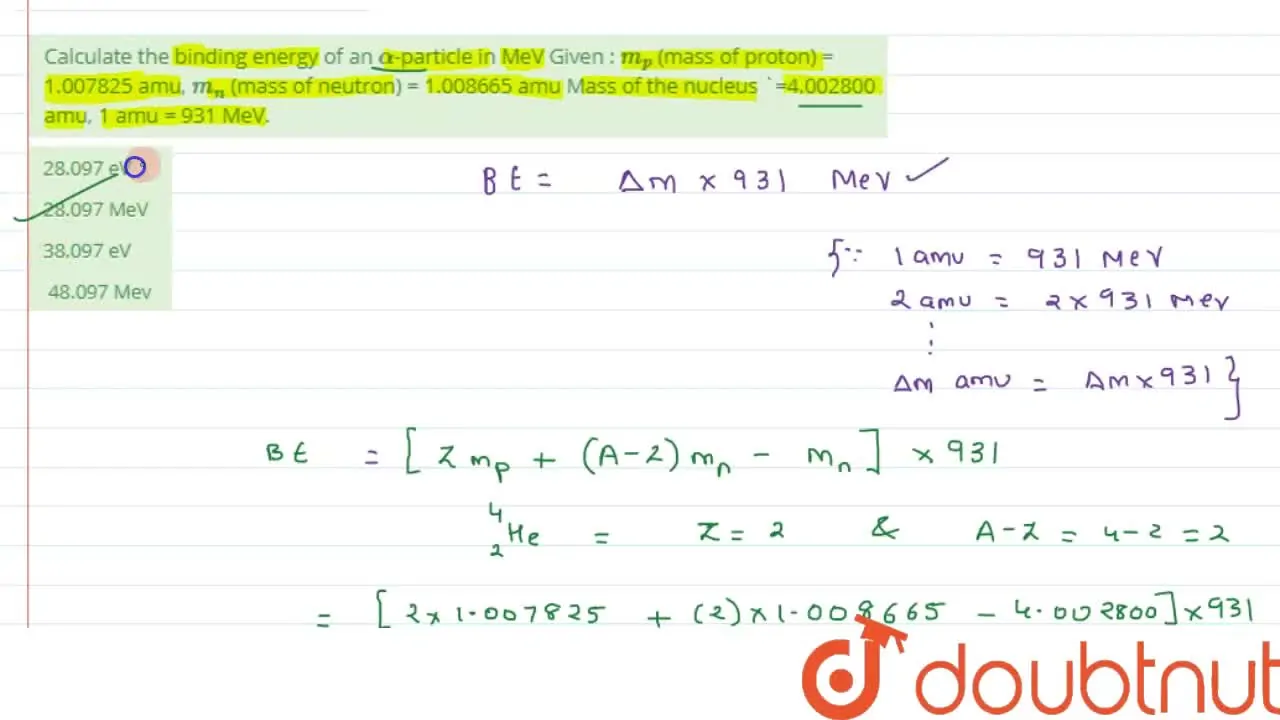 Calculate the binding energy of an α-particle in MeV Given : mₚ (mass of proton) =
1.007825 amu, mₙ (mass of neutron) = 1.008665 amu Mass of the nucleus ` =4.002800
amu, 1 amu = 931 MeV.
28.097 eV
28.097 MeV
38.097 eV
48.097 Mev
BE = Δm × 931 MeV ✓
{∵ 1 amu = 931 MeV
2 amu = 2 × 931 Mev
⋮
Δm amu = Δm × 931}
BE = [Z mₚ + (A-Z) mₙ - mₙ] × 931
⁴₂He = Z = 2 & A-Z = 4-2 = 2
= [2 × 1.007825 + (2) × 1.008665 - 4.002800] × 931
doubtnut